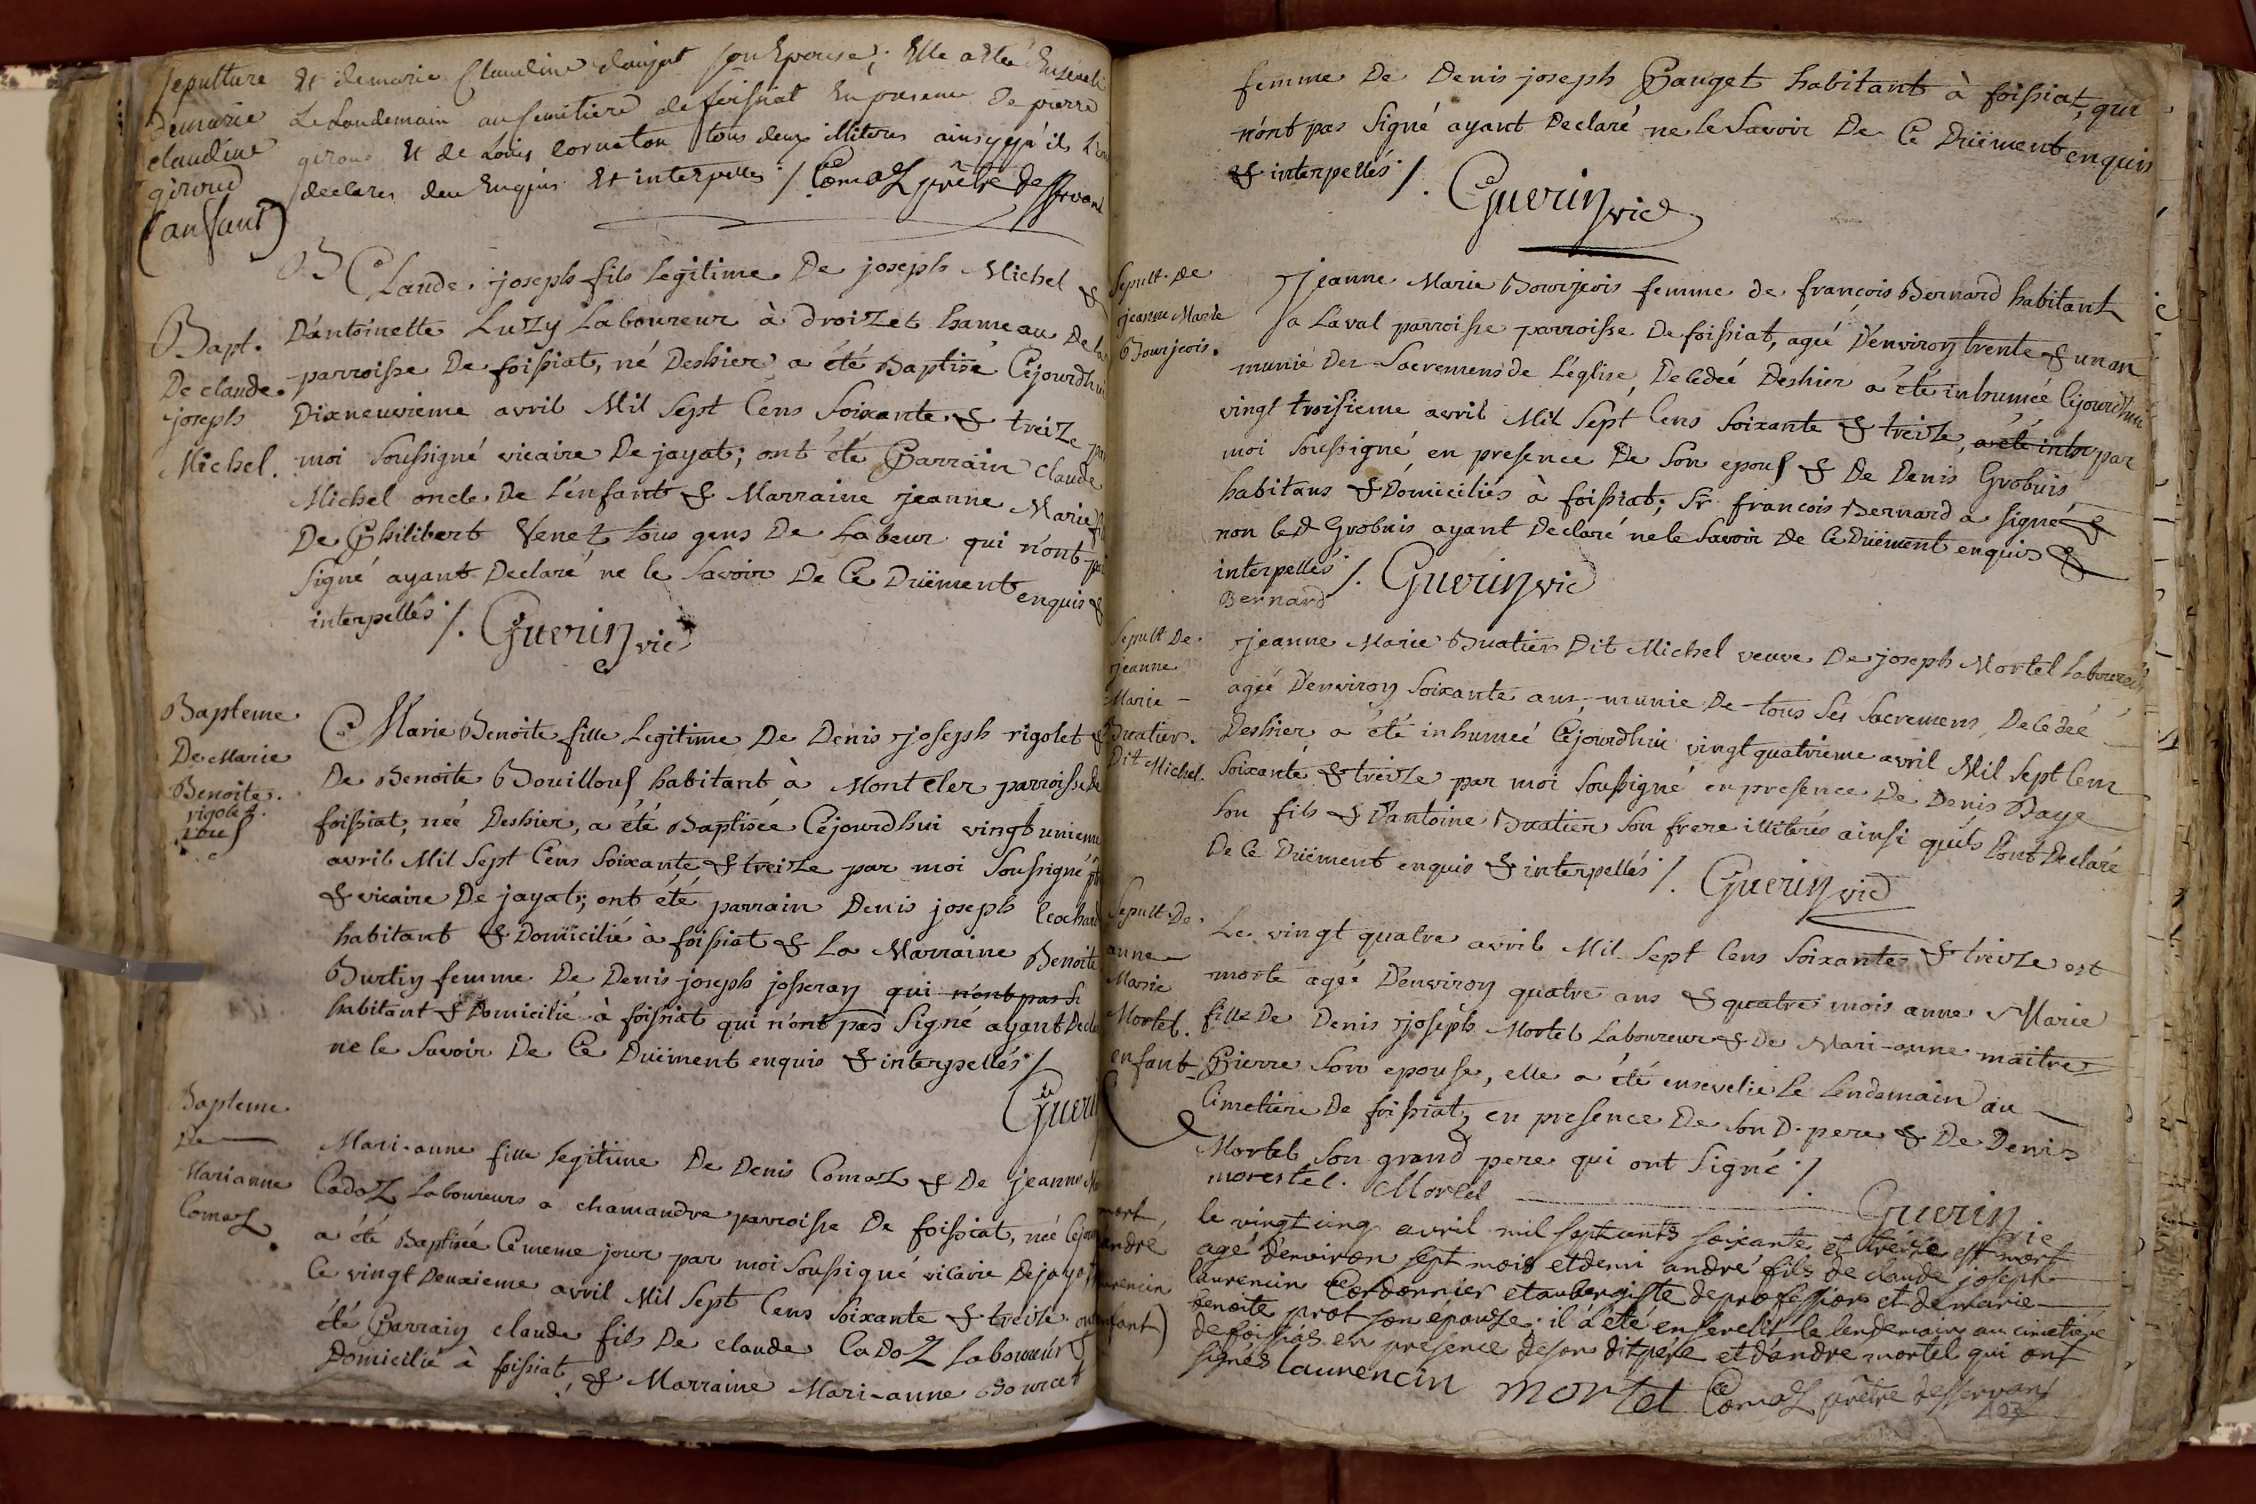 sepulture
demarie
claudine
giroud
(anfant)
Et demarie Claudine danjat son Epouse; Elle a Etée Enseveli
Le Landemain au semitiere de foissiat En presence De pierre
giroud Et de Louis cornaton tous deux illiteres ainsy qu'ils L'on
declarez deu Enquis Et interpellés ./. Comaz prêtre desservant
Bapt.
De claude
joseph
Michel.
Claude joseph fils Legitime De joseph Michel &
D'antoinette Luzy Laboureur à droizet hameau De la
parroisse De foissiat, né Deshier a été Baptisé Cejourdhui
Dixneuvieme avril Mil Sept Cens Soixante & treize par
moi Soussigné vicaire De jayat; ont été Parrain Claude
Michel oncle De L'enfant & Marraine jeanne Marie
De Philibert Venet tous gens De Labeur qui n'ont pas
Signé ayant Declaré ne le Savoir De Ce Düement enquis &
interpellés ./. Guerin vic
Bapteme
De Marie
Benoite
rigolet
Marie Benoite fille Legitime De Denis joseph rigolet &
De Benoite Bouillouf habitant à Montcler parroisse De
foissiat, née Deshier, a été Baptisée Cejourdhui vingt unieme
avril Mil Sept Cens Soixante & treize par moi Soussigné ptre
& vicaire De jayat; ont été parrain Denis joseph
habitant & Domicilié à foissiat & La Marraine Benoite
Burtin femme De Denis joseph josseran qui n'ont pas Si
habitant & Domicilié à foissiat qui n'ont pas Signé ayant Decla
ne le Savoir De Ce Düement enquis & interpellés ./.
Guerin
Bapteme
De
Marianne
Comaz
Mari-anne fille Legitime De Denis Comaz & De jeanne M
Cadoz Laboureurs a chamandre parroisse De foissiat, née Cejour
a été Baptisée Cememe jour par moi Soussigné vicaire De jayat
Ce vingt Deuxieme avril Mil Sept Cens Soixante & treize ont
été Parrain claude fils De claude Cadoz Laboureur
Domicilié à foissiat & Marraine Mari-anne
femme De Denis joseph Pauget habitant à foissiat, qui
n'ont pas Signé ayant Declaré ne le Savoir De Ce Düement enquis
& interpellés ./. Guerin vic
Sepult. De
jeanne Marie
Bourjeois.
Jeanne Marie Bourjeois femme de françois Bernard habitant
a Laval parroisse parroisse De foissiat, agée D'environ trente & un an
munie Des Sacremens de L'église, Decedeé Deshier a été inhumée Cejourdhui
vingt troisieme avril Mil Sept Cens Soixante & treize, a été inhu par
moi Soussigné, en presence De Son epouf & De Denis Grobuis
habitans & Domiciliés à foissiat; Sr. francois Bernard a signé &
non led Grobuis ayant Declaré ne le Savoir de Ce Düement enquis &
interpellés ./. Guerin vic
Bernard
Sepult De
jeanne
Marie
Buatier
Dit Michel.
Jeanne Marie Buatier Dit Michel veuve De joseph Mortel Laboureur
agée D'environ Soixante ans, munie De tous Ses Sacremens, Decedeé
Deshier a été inhumeé Cejourdhui vingt quatrieme avril Mil Sept Cens
Soixante & treize par moi Soussigné en presence De Denis Baye
Son fils & D'antoine Buatier Son frere illiterés ainsi quils L'ont Declaré
De Ce Düement enquis & interpellés ./. Guerin vic
Sepult De
anne
Marie
Mortel.
enfant
Le vingt quatre avril Mil Sept Cens Soixante & treize est
morte ageé D'environ quatre ans & quatre mois anne Marie
fille De Denis joseph Mortel Laboureur & De Mari-anne maitre
Pierre Son epouse, elle a été ensevelie Le Lendemain au
Cimetiere De foissiat, en presence De Son D. pere & De Denis
Mortel Son grand pere qui ont Signé ./.
morestel. Mortel Guerin vic
mort
andré
laurencin
enfant)
le vingt cinq avril mil sept cents soixante et treize est mort
agé d'environ sept mois et demi andré fils de claude joseph
laurencin Cordonnier et aubergiste de profession et de marie
benoite prot son épouse. il a été enseveli le lendemain au cimetiere
de foissias en presence de son dit père et d'andre mortel qui ont
signés laurencin mortel Comaz prêtre desservant
103